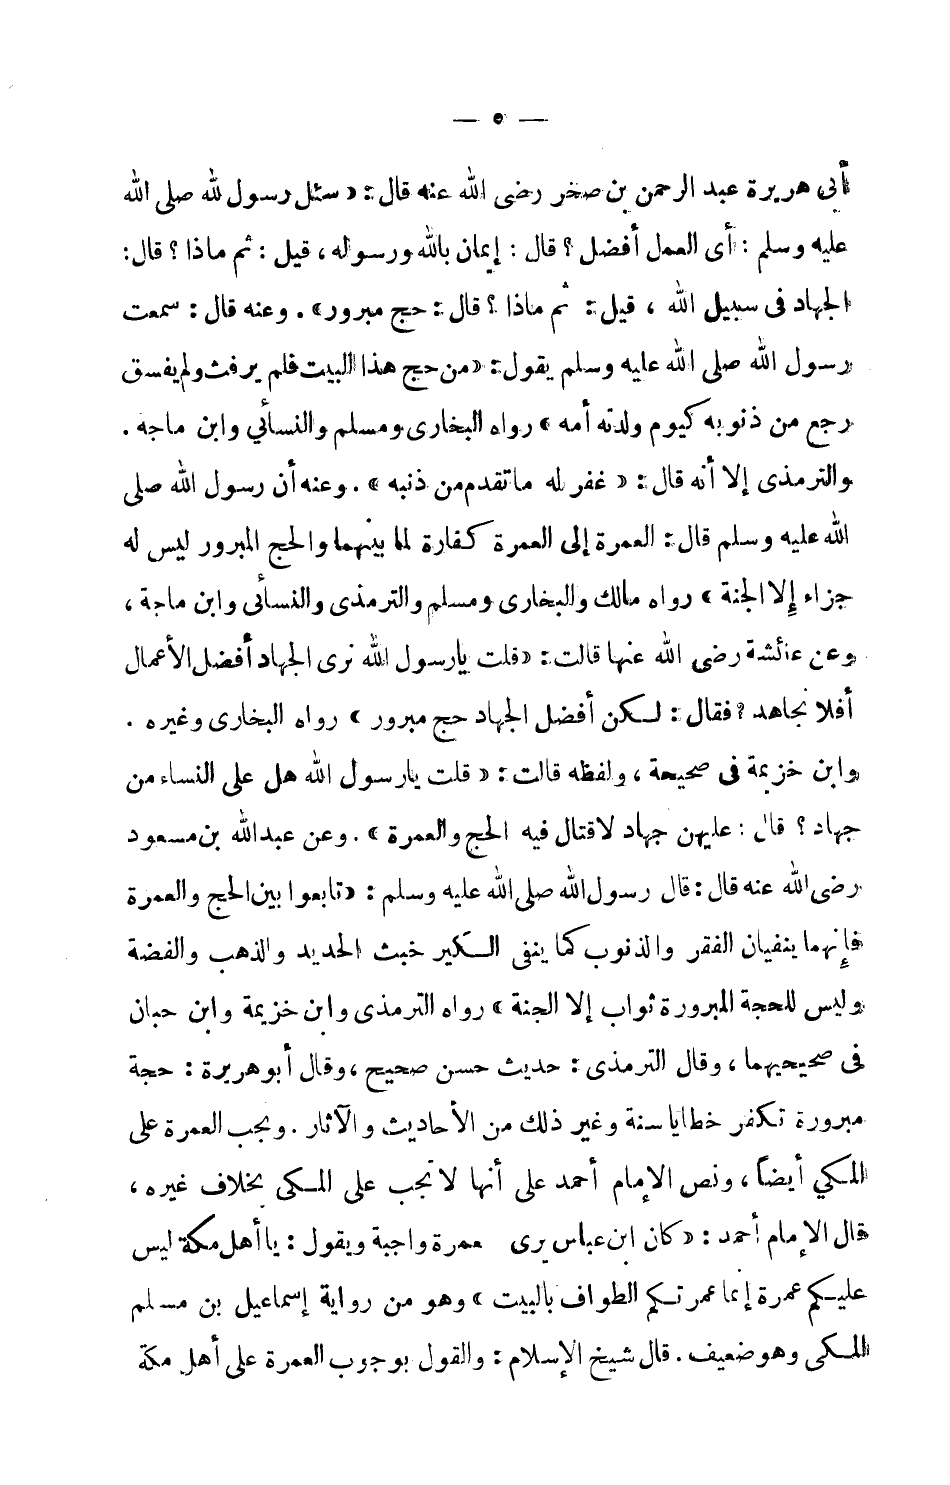 — ٥ —
أبى هريرة عبد الرحمن بن صخر رضى الله عنه قال : « سئل رسول لله صلى الله
عليه وسلم : أى العمل أفضل ؟ قال : إيمان بالله ورسوله ، قيل : ثم ماذا ؟ قال :
الجهاد فى سبيل الله ، قيل : ثم ماذا ؟ قال : حج مبرور » . وعنه قال : سمعت
رسول الله صلى الله عليه وسلم يقول : « من حج هذا البيت فلم يرفث ولم يفسق
رجع من ذنوبه كيوم ولدته أمه » رواه البخارى ومسلم والنسأئي وابن ماجه .
والترمذى إلا أنه قال : « غفر له ماتقدم من ذنبه » . وعنه أن رسول الله صلى
الله عليه وسلم قال : العمرة إلى العمرة كفارة لما بينهما والحج المبرور ليس له
جزاء إلا الجنة » رواه مالك والبخارى ومسلم والترمذى والنسأئى وابن ماجة ،
وعن عائشة رضى الله عنها قالت : « قلت يارسول الله نرى الجهاد أفضل الأعمال
أفلا نجاهد ؟ فقال : لكن أفضل الجهاد حج مبرور » رواه البخارى وغيره .
وابن خزيمة فى صحيحة ، ولفظه قالت : « قلت يارسول الله هل على النساء من
جهاد ؟ قال : عليهن جهاد لاقتال فيه الحج والعمرة » . وعن عبدالله بن مسعود
رضى الله عنه قال : قال رسول الله صلى الله عليه وسلم : « تابعوا بين الحج والعمرة
فإنهما ينفيان الفقر والذنوب كما ينفى الكير خبث الحديد والذهب والفضة
وليس للحجة المبرورة ثواب إلا الجنة » رواه الترمذى وابن خزيمة وابن حبان
فى صحيحيهما ، وقال الترمذى : حديث حسن صحيح ، وقال أبو هريرة : حجة
مبرورة تكفر خطايا سنة وغير ذلك من الأحاديث والآثار . وتجب العمرة على
المكي أيضاً ، ونص الإمام أحمد على أنها لا تجب على المكى بخلاف غيره ،
قال الإمام أحمد : « كان ابن عباس يرى عمرة واجبة ويقول : يا أهل مكة ليس
عليكم عمرة إنما عمرتكم الطواف بالبيت » وهو من رواية إسماعيل بن مسلم
المكى وهو ضعيف . قال شيخ الإسلام : والقول بوجوب العمرة على أهل مكة